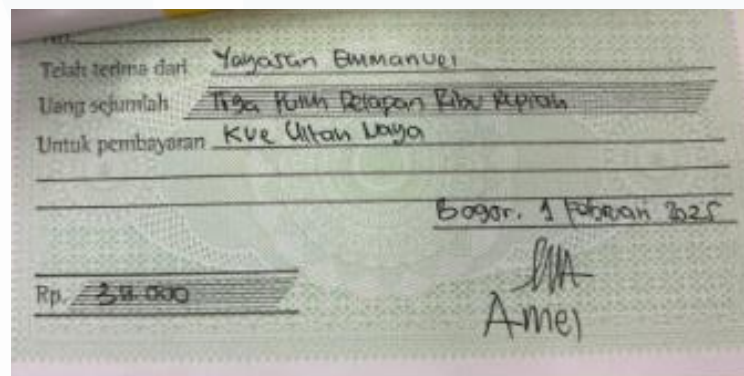 No.
Telah terima dari Yayasan Emmanuel
Uang sejumlah Tiga Puluh Delapan Ribu Rupiah
Untuk pembayaran Kue Ultah Naya
Bogor, 1 Februari 2025
Rp. 38.000
Amei